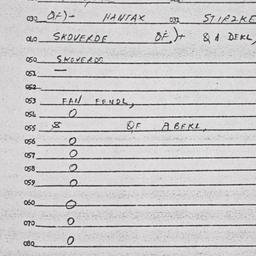 030 OF)- HANTAX 032 STIPZKE
040 SKOVERDE OF.)+ & A DEKL,
050 SKOVERDE
051 —
052
053 FAN FENDL,
054 O
055 & OF ABEKL,
056 O
057 O
058 O
059 O
060 O
070 O
080 O